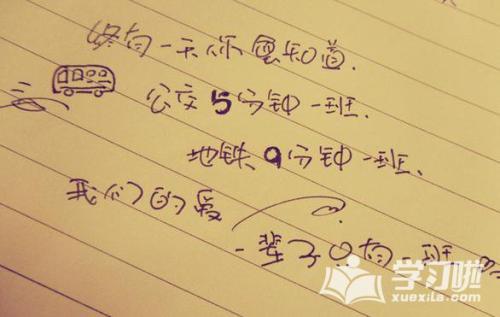 终有一天你会知道.
公交5分钟一班.
地铁9分钟一班.
我们的爱
一辈子只有一班
学习啦
xuexila.com